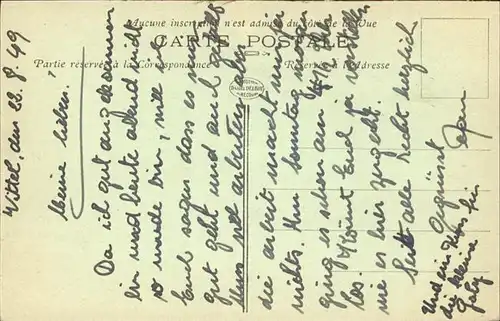 Aucune inscription n'est admise du côté de la Vue
CARTE POSTALE
Partie réservée à la Correspondance
Réservée à l'Adresse
Vittel, den 23. 8. 49
Meine lieben!
Da ich gut angekommen
bin und heute abend nicht
so müde bin, will ich
Euch sagen dass es mir
gut geht und auch
Muss viel arbeiten aber
die arbeit macht mir
nichts. Am Sonntag
ging es schon am
los. Ihr könnt Euch ja vorstellen
wie es hier zugeht.
Seit alle recht herzlich
gegrüsst
Und ein Kuss für
die kleine